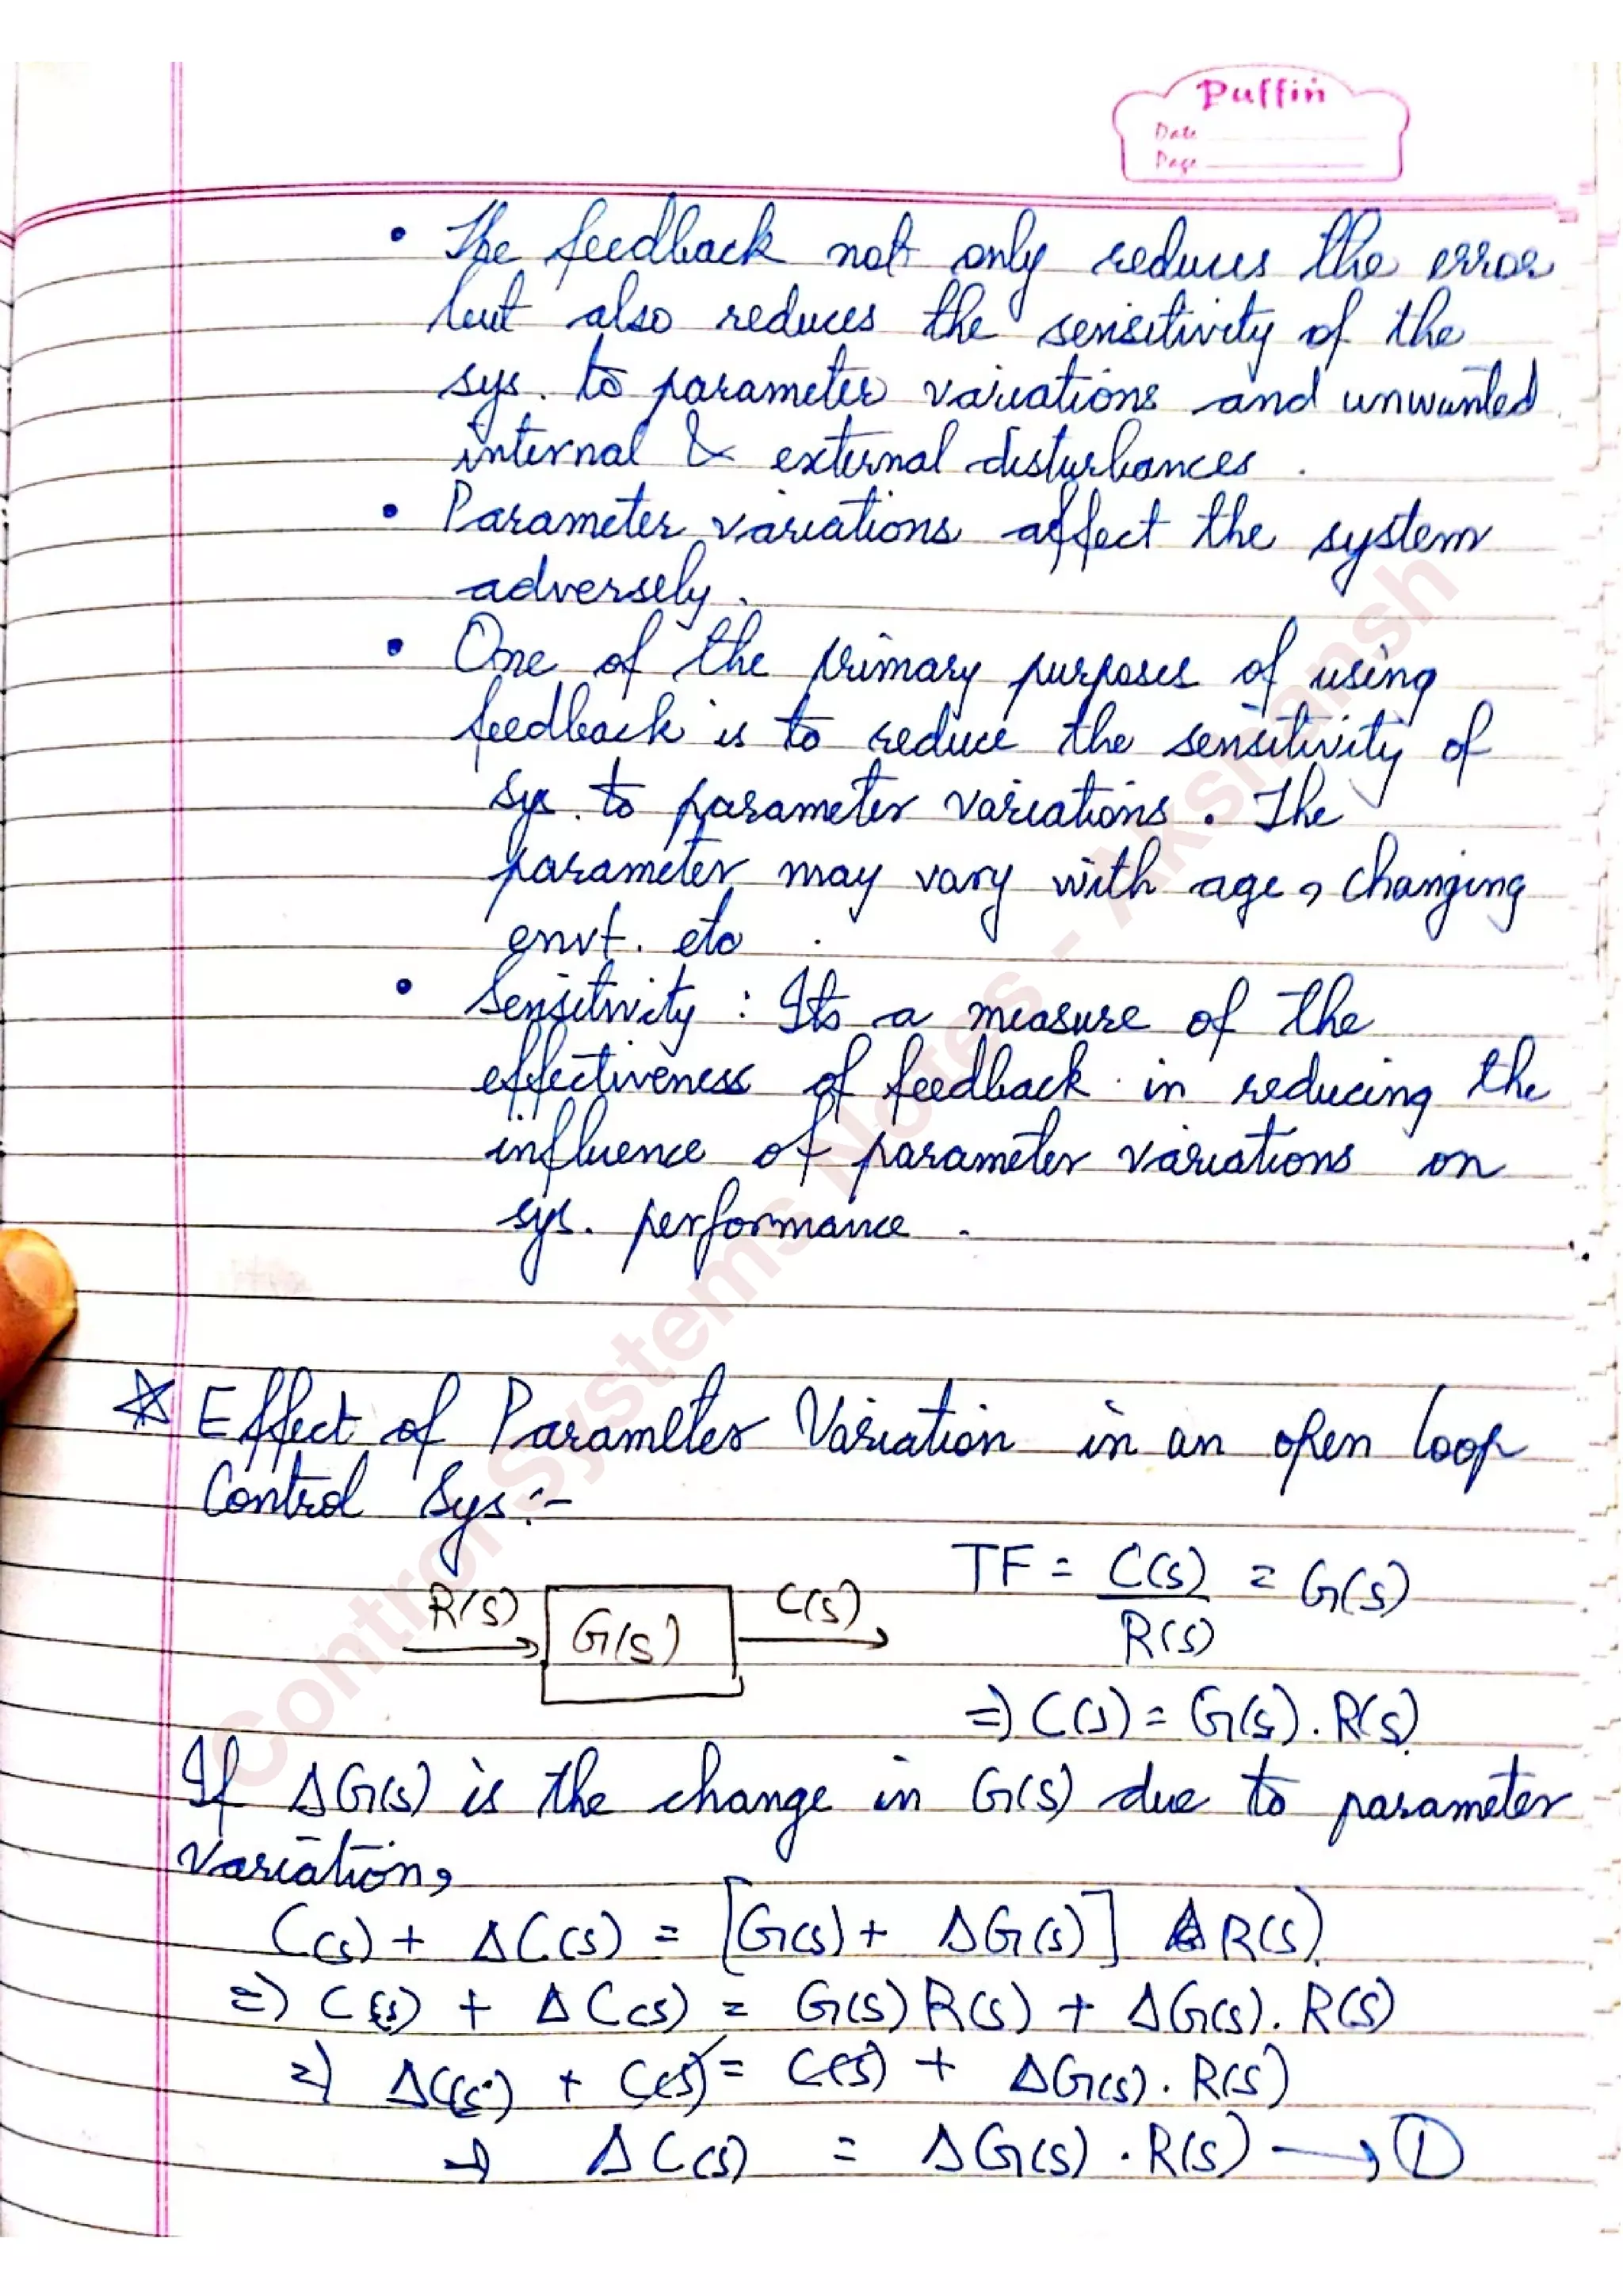 Puffin
Date
Page
• The feedback not only reduces the error
but also reduces the sensitivity of the
sys. to parameter variations and unwanted
internal & external disturbances.
• Parameter variations affect the system
adversely.
• One of the primary purposes of using
feedback is to reduce the sensitivity of
sys. to parameter variations. The
parameter may vary with age, changing
envt. etc.
• Sensitivity : Its a measure of the
effectiveness of feedback in reducing the
influence of parameter variations on
sys. performance.
☆ Effect of Parameter Variation in an open loop
Control Sys:-
TF = C(s)/R(s) = G(s)
R(s) G(s) C(s)
=) C(s) = G(s).R(s)
If ΔG(s) is the change in G(s) due to parameter
variation,
C(s) + ΔC(s) = [G(s) + ΔG(s)] R(s)
=) C(s) + ΔC(s) = G(s) R(s) + ΔG(s).R(s)
=) ΔC(s) + C(s) = C(s) + ΔG(s).R(s)
→ ΔC(s) = ΔG(s).R(s) → ①
Control Systems Notes - Akshansh